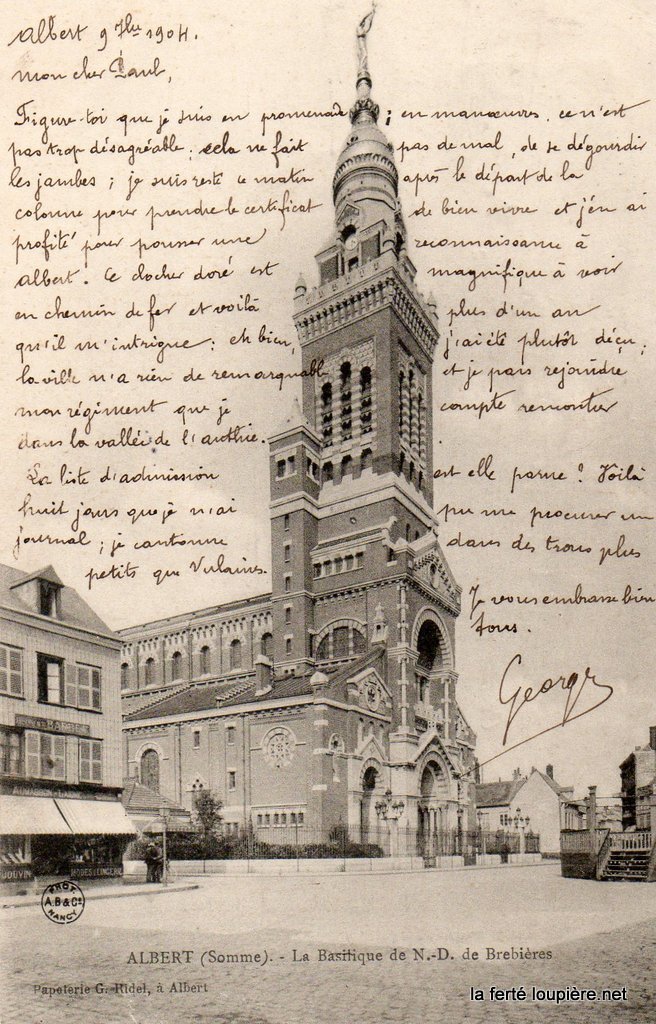 Albert 9 7bre 1904.
mon cher Paul,
Figure-toi que je suis en promenade ; en manœuvres. ce n'est
pas trop désagréable ; cela ne fait pas de mal, de se dégourdir
les jambes ; je suis resté ce matin après le départ de la
colonne pour prendre le certificat de bien vivre et j'en ai
profité pour pousser une reconnaissance à
Albert. Ce clocher doré est magnifique à voir
en chemin de fer et voilà plus d'un an
qu'il m'intrigue : eh bien, j'ai été plutôt déçu ;
la ville n'a rien de remarquable et je pars rejoindre
mon régiment que je compte rencontrer
dans la vallée de l'authie.
La liste d'admission est elle parue ? Voilà
huit jours que je n'ai pu me procurer un
journal ; je cantonne dans des trous plus
petits que Vulaines.
Je vous embrasse bien
tous.
George
BAZAR
MODES LINGERIE
PHOT.
A.B & Cie
NANCY
ALBERT (Somme). - La Basilique de N.-D. de Brebières
Papeterie G. Ridel, à Albert
la ferté loupière.net